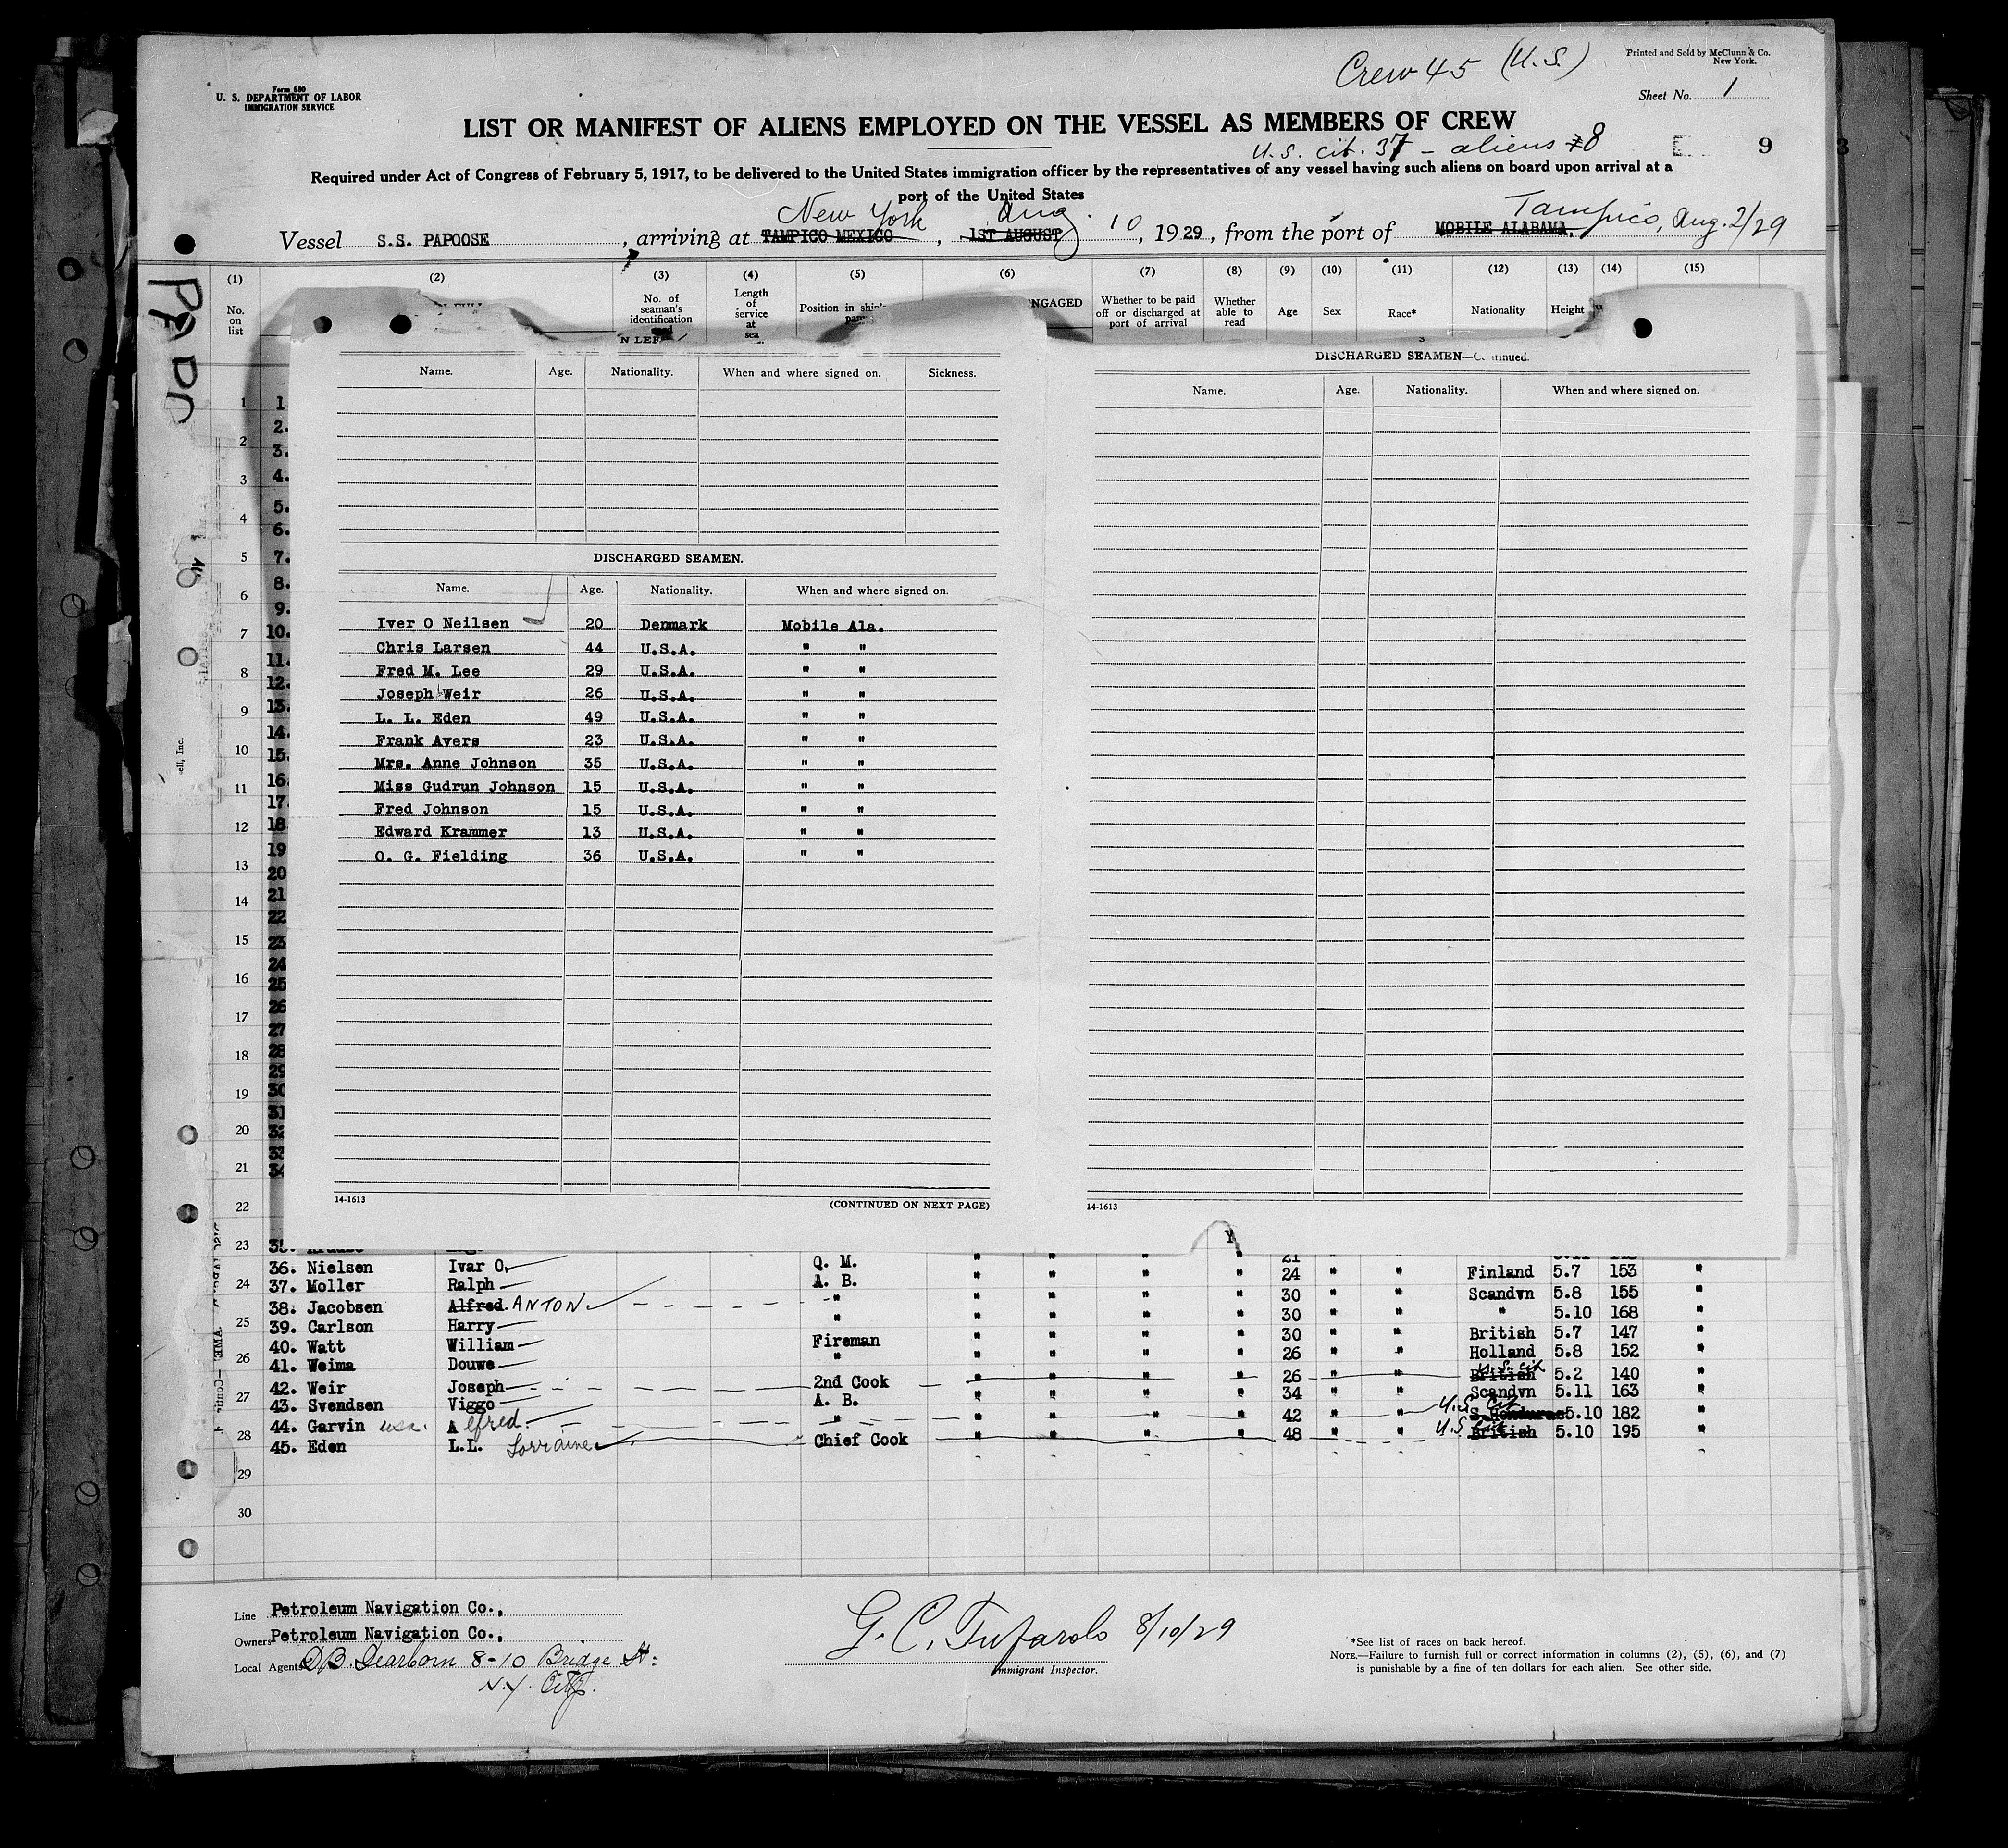 Crew 45 (U.S.)
Printed and Sold by McClunn & Co.
New York.
Form 680
U. S. DEPARTMENT OF LABOR
IMMIGRATION SERVICE
Sheet No. 1
LIST OR MANIFEST OF ALIENS EMPLOYED ON THE VESSEL AS MEMBERS OF CREW
U.S. cit. 37 - aliens 8
9 3
Required under Act of Congress of February 5, 1917, to be delivered to the United States immigration officer by the representatives of any vessel having such aliens on board upon arrival at a
port of the United States
New York Aug. 10 Tampico, Aug. 2/29
Vessel S.S. PAPOOSE, arriving at TAMPICO MEXICO, 1ST AUGUST, 1929, from the port of MOBILE ALABAMA.
(1) (2) (3) (4) (5) (6) (7) (8) (9) (10) (11) (12) (13) (14) (15)
No. on list
No. of seaman's identification
Length of service at sea
Position in ship's
ENGAGED
Whether to be paid off or discharged at port of arrival
Whether able to read
Age
Sex
Race*
Nationality
Height
Name. Age. Nationality. When and where signed on. Sickness.
DISCHARGED SEAMEN.
Name. Age. Nationality. When and where signed on.
Iver O Neilsen 20 Denmark Mobile Ala.
Chris Larsen 44 U.S.A. " "
Fred M. Lee 29 U.S.A. " "
Joseph Weir 26 U.S.A. " "
L. L. Eden 49 U.S.A. " "
Frank Avers 23 U.S.A. " "
Mrs. Anne Johnson 35 U.S.A. " "
Miss Gudrun Johnson 15 U.S.A. " "
Fred Johnson 15 U.S.A. " "
Edward Krammer 13 U.S.A. " "
O. G. Fielding 36 U.S.A. " "
14-1613 (CONTINUED ON NEXT PAGE)
DISCHARGED SEAMEN—Continued.
Name. Age. Nationality. When and where signed on.
14-1613
1 2 3 4 5 6 7 8 9 10 11 12 13 14 15 16 17 18 19 20 21 22 23 24 25 26 27 28 29 30
1 2. 3. 4. 5. 6. 7. 8. 9. 10. 11. 12. 13. 14. 15. 16. 17. 18 19 20 21 22 23 24 25 26 27 28 29 30 31 32 33 34
35. 21
36. Nielsen Ivar O. Q. M. " " " " 24 " " Finland 5.7 153 "
37. Moller Ralph A. B. " " " " 30 " " Scandvn 5.8 155 "
38. Jacobsen Alfred. ANTON " " " " " 30 " " " 5.10 168 "
39. Carlson Harry " " " " " 30 " " British 5.7 147 "
40. Watt William Fireman " " " " 26 " " Holland 5.8 152 "
41. Weima Douwe " " " " " 26 " " British U.S. cit 5.2 140 "
42. Weir Joseph 2nd Cook " " " " 34 " " Scandvn 5.11 163 "
43. Svendsen Viggo A. B. " " " " 42 " " U.S. Cit S. Honduras 5.10 182 "
44. Garvin usa. Alfred. " " " " " 48 " " U.S. Cit British 5.10 195 "
45. Eden L.L. Lorraine Chief Cook
Line Petroleum Navigation Co.,
Owners Petroleum Navigation Co.,
Local Agents D.B. Dearborn 8-10 Bridge St:
N.Y. City.
G. C. Tufarolo 8/10/29
Immigrant Inspector.
*See list of races on back hereof.
NOTE.—Failure to furnish full or correct information in columns (2), (5), (6), and (7)
is punishable by a fine of ten dollars for each alien. See other side.